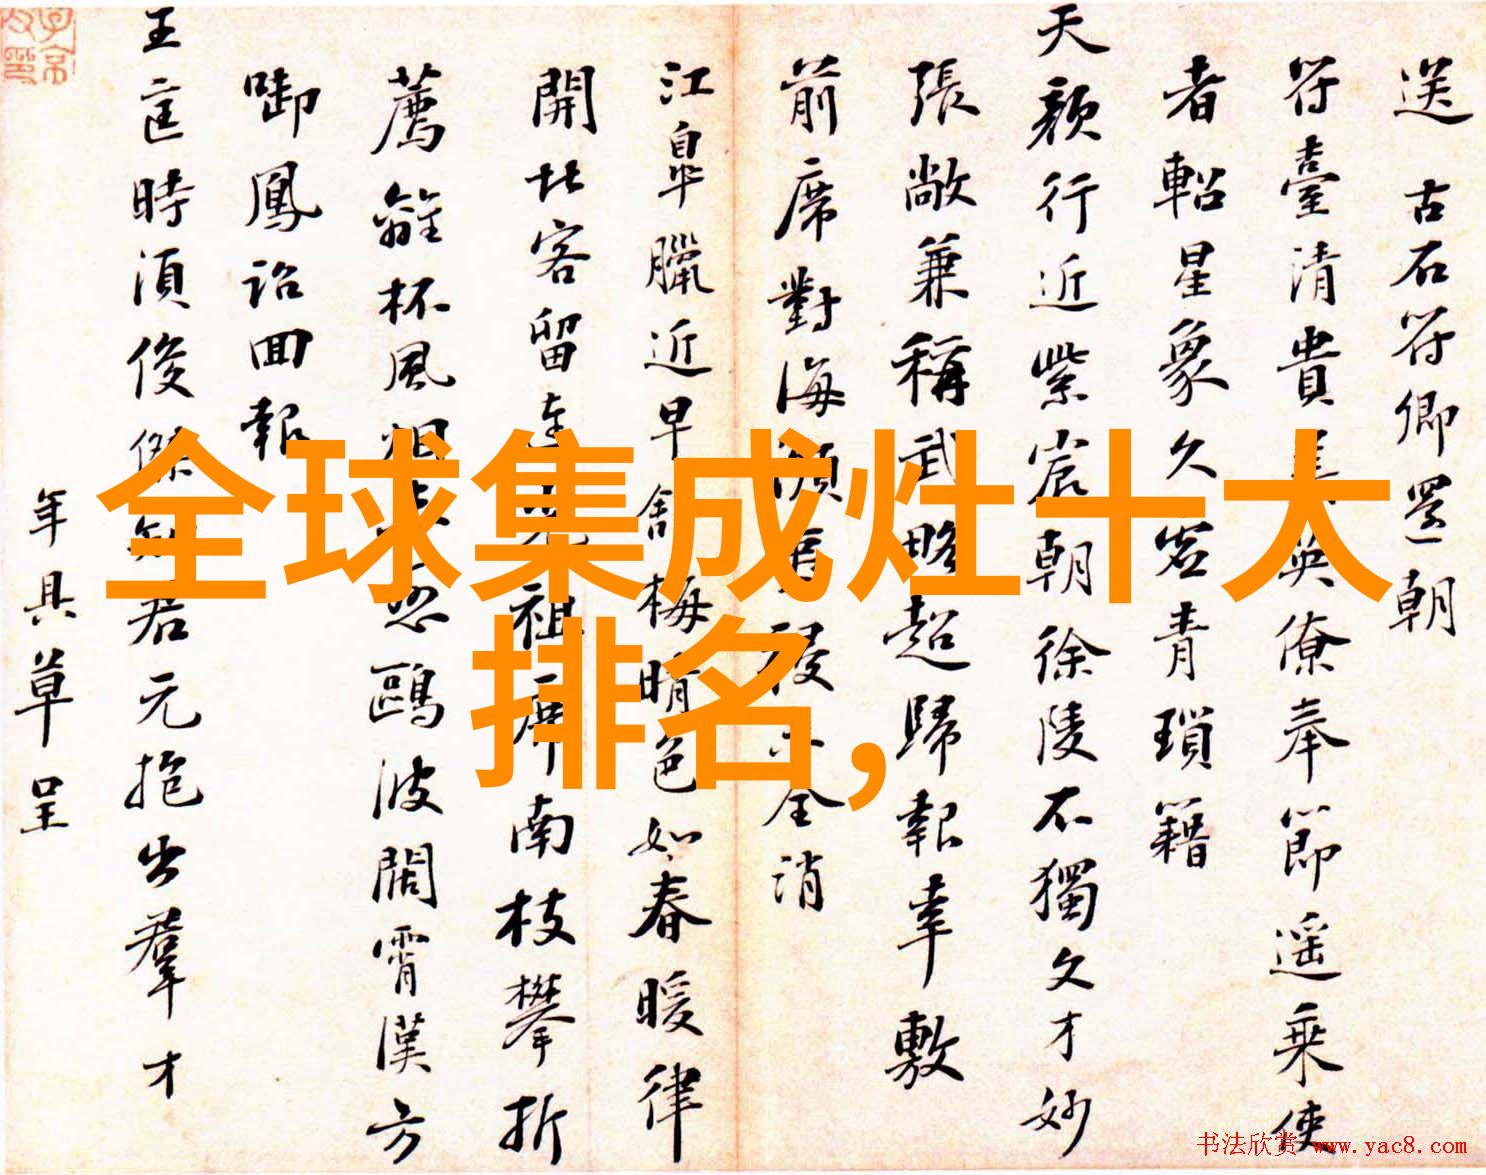 全球集成灶十大
排名,
送古石符卿還朝
符臺清貴英僚奉節遥乘使
者軺星象久青瑣籍
天顔行近紫宸朝徐陵不獨文才妙
張敞兼稱武略超歸報幸敷
前席對海濵祲全消
江皐臘近早舍梅晴色如春暖律
開北客留連祖席南枝攀折
薦離杯風烟忽鷗波闊霄漢方
啣鳳詔回報
王匡時須俊傑知君元抱出羣才
年具草呈
书法欣赏 www.yac8.com